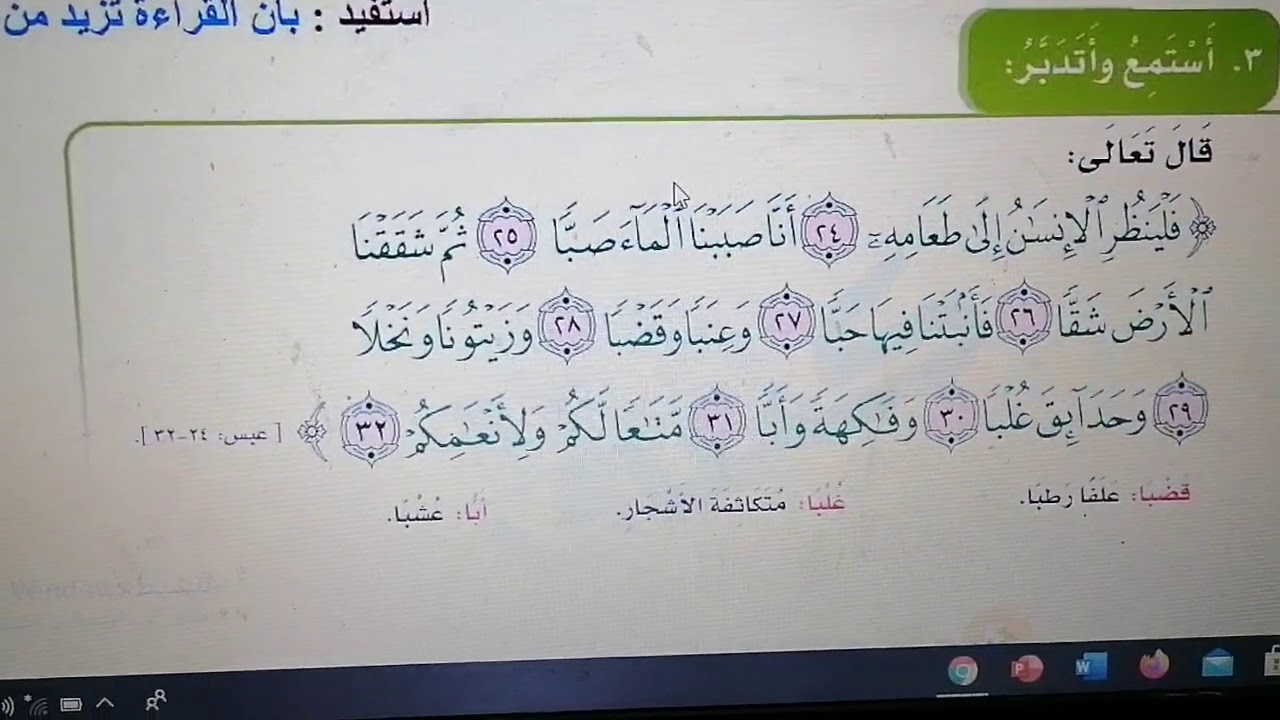 أستفيد : بأن القراءة تزيد من
٣. أَسْتَمِعُ وأَتَدَبَّرُ:
قَالَ تَعَالَى:
﴿ فَلْيَنظُرِ ٱلْإِنسَٰنُ إِلَىٰ طَعَامِهِۦٓ ٢٤ أَنَّا صَبَبْنَا ٱلْمَآءَ صَبًّا ٢٥ ثُمَّ شَقَقْنَا
ٱلْأَرْضَ شَقًّا ٢٦ فَأَنۢبَتْنَا فِيهَا حَبًّا ٢٧ وَعِنَبًا وَقَضْبًا ٢٨ وَزَيْتُونًا وَنَخْلًا
٢٩ وَحَدَآئِقَ غُلْبًا ٣٠ وَفَٰكِهَةً وَأَبًّا ٣١ مَّتَٰعًا لَّكُمْ وَلِأَنْعَٰمِكُمْ ٣٢ ﴾ [ عبس: ٢٤-٣٢ ].
قَضْبًا: عَلَفًا رَطبًا. غُلْبًا: مُتَكَاثِفَةَ الأَشْجَارِ. أبًّا: عُشْبًا.
Windows